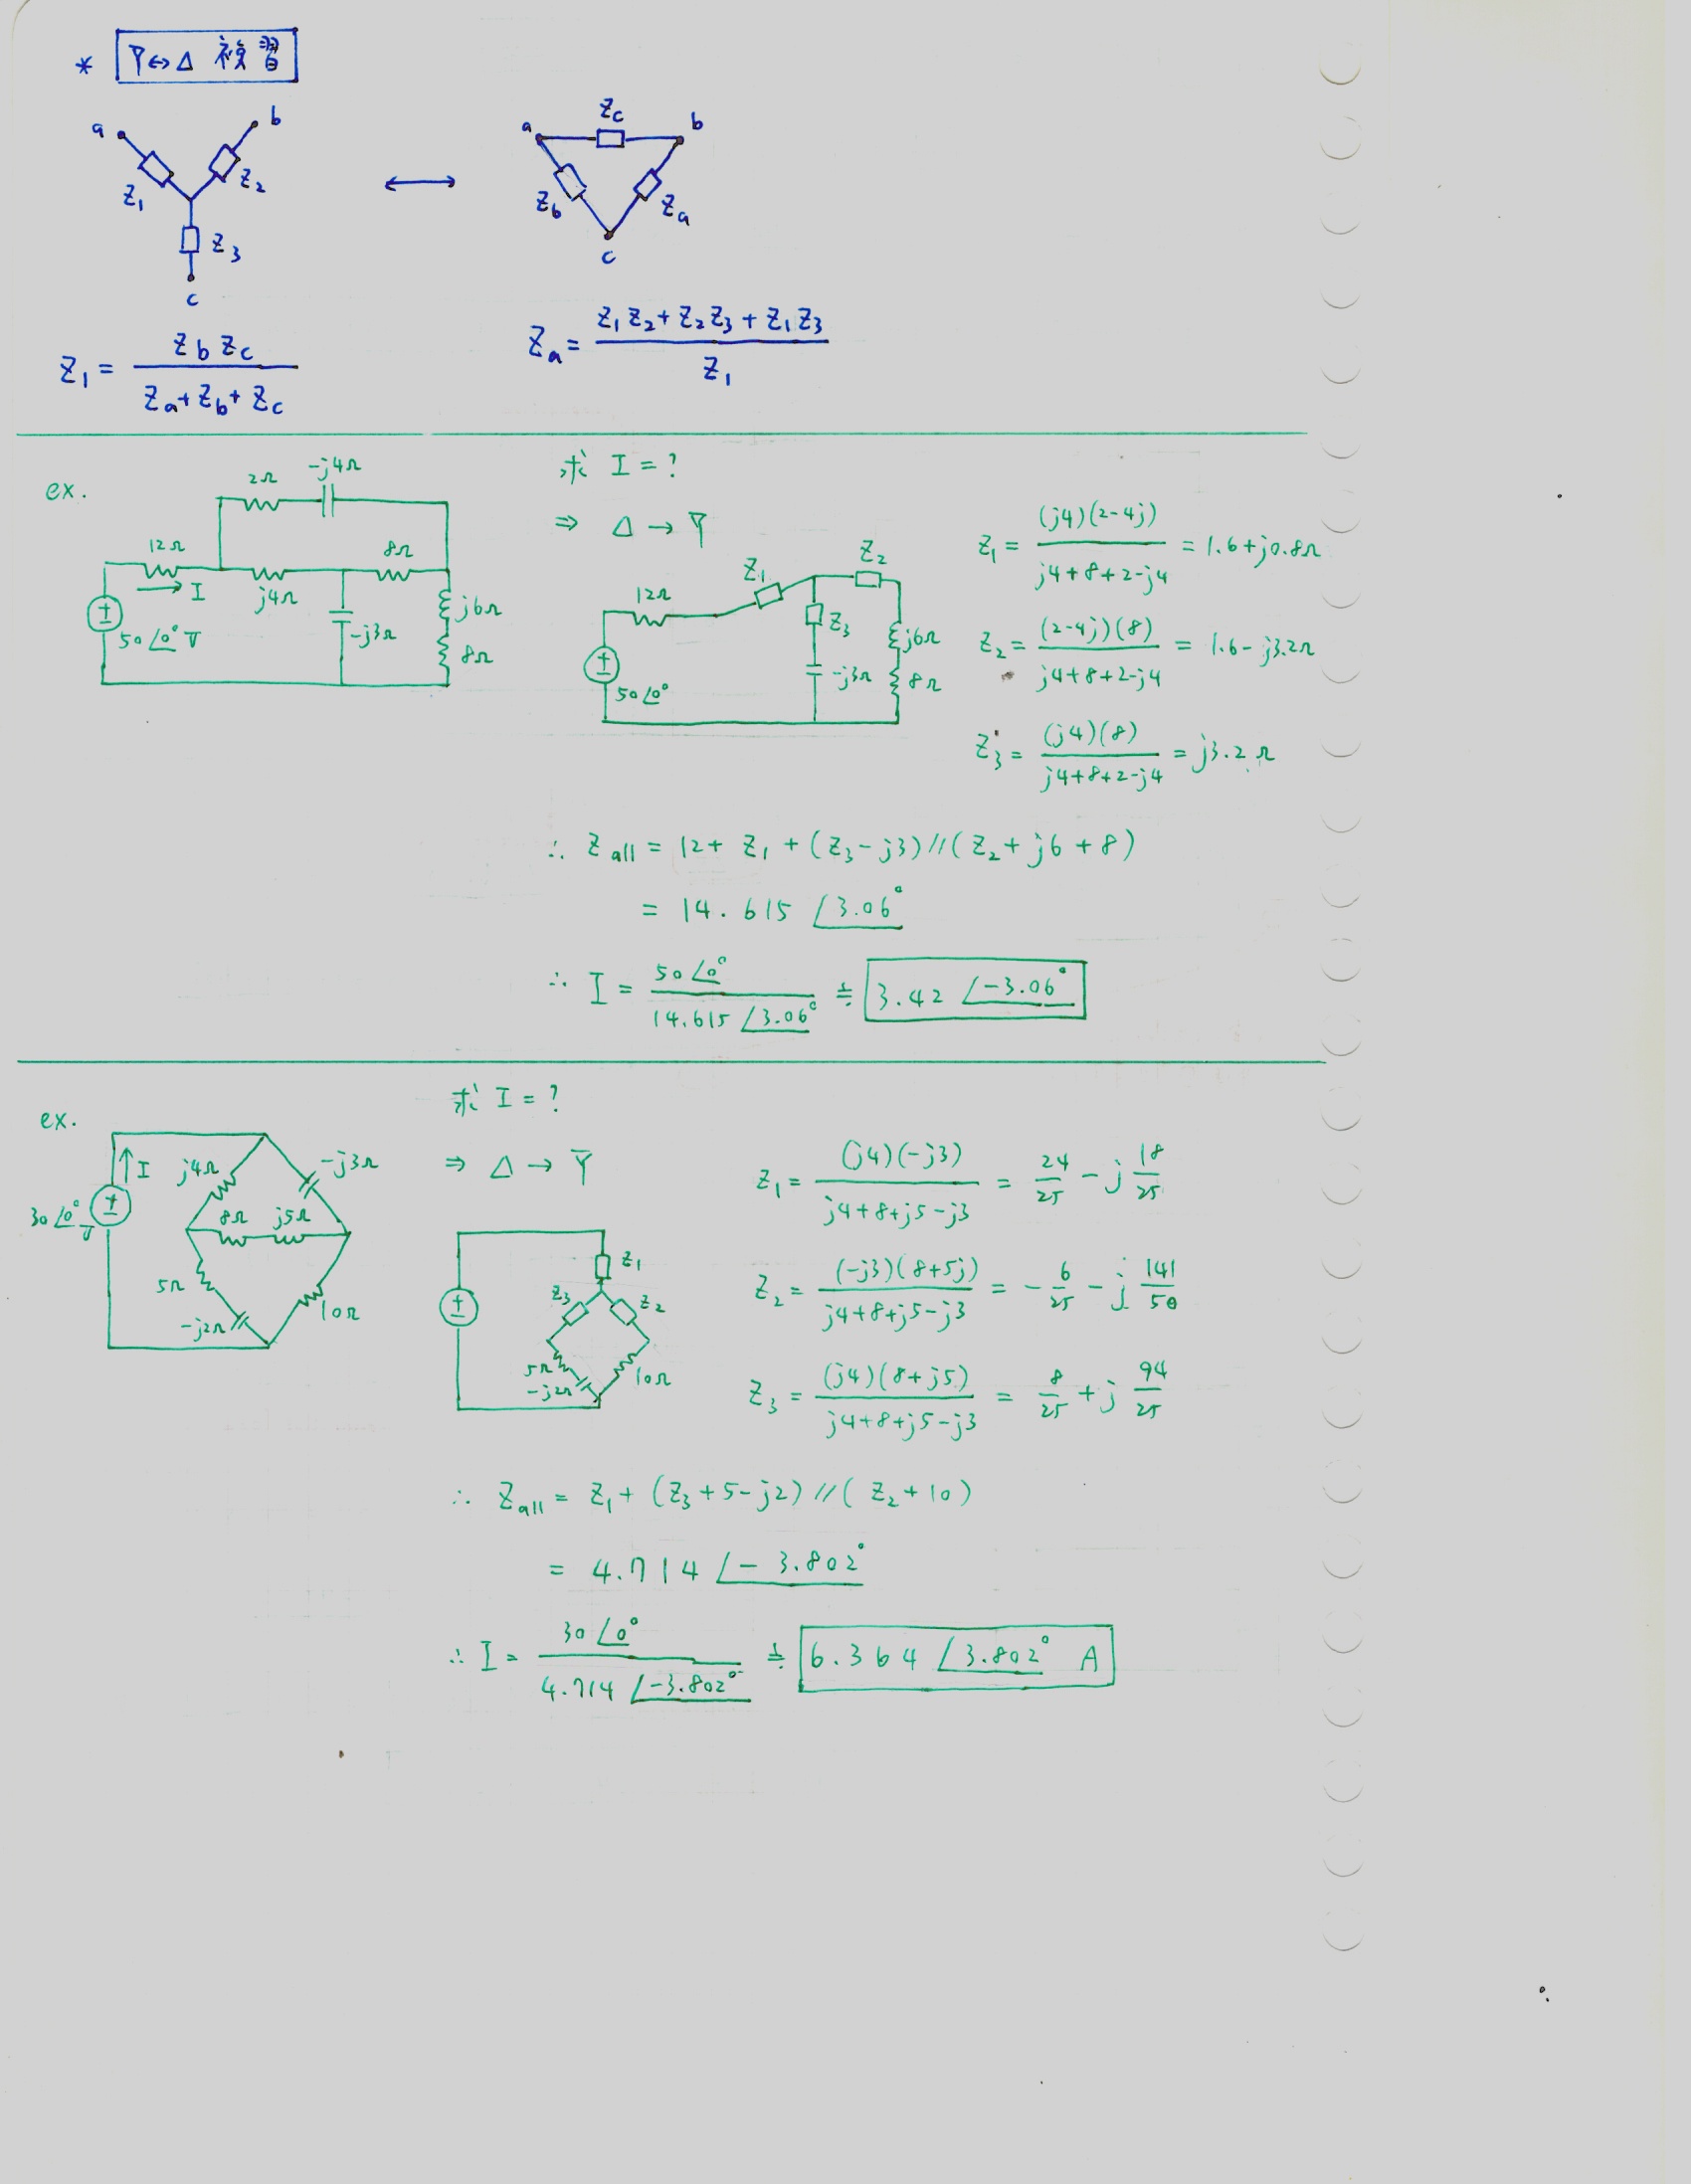 * Y↔Δ 複習
a
b
Z1
Z2
Z3
c
Zc
a
b
Zb
Za
c
Z1 = Zb Zc / (Za+Zb+Zc)
Za = (Z1 Z2+Z2 Z3+Z1 Z3) / Z1
ex.
2Ω
-j4Ω
12Ω
8Ω
I
j4Ω
j6Ω
-j3Ω
8Ω
50∠0° V
求 I = ?
⇒ Δ → Y
Z1
Z2
12Ω
Z3
j6Ω
-j3Ω
8Ω
50∠0°
Z1 = (j4)(2-4j) / (j4+8+2-j4) = 1.6+j0.8Ω
Z2 = (2-4j)(8) / (j4+8+2-j4) = 1.6-j3.2Ω
Z3 = (j4)(8) / (j4+8+2-j4) = j3.2Ω
∴ Zall = 12+ Z1 + (Z3-j3)//(Z2+j6+8)
= 14.615 ∠3.06°
∴ I = 50∠0° / 14.615∠3.06° ≒ 3.42 ∠-3.06°
ex.
求 I = ?
I
j4Ω
-j3Ω
30∠0° V
8Ω
j5Ω
5Ω
-j2Ω
10Ω
⇒ Δ → Y
Z1
Z3
Z2
5Ω
-j2Ω
10Ω
Z1 = (j4)(-j3) / (j4+8+j5-j3) = 24/25 - j 18/25
Z2 = (-j3)(8+5j) / (j4+8+j5-j3) = -6/25 - j 141/50
Z3 = (j4)(8+j5) / (j4+8+j5-j3) = 8/25 + j 94/25
∴ Zall = Z1 + (Z3+5-j2)//(Z2+10)
= 4.714 ∠-3.802°
∴ I = 30∠0° / 4.714∠-3.802° ≒ 6.364 ∠3.802° A